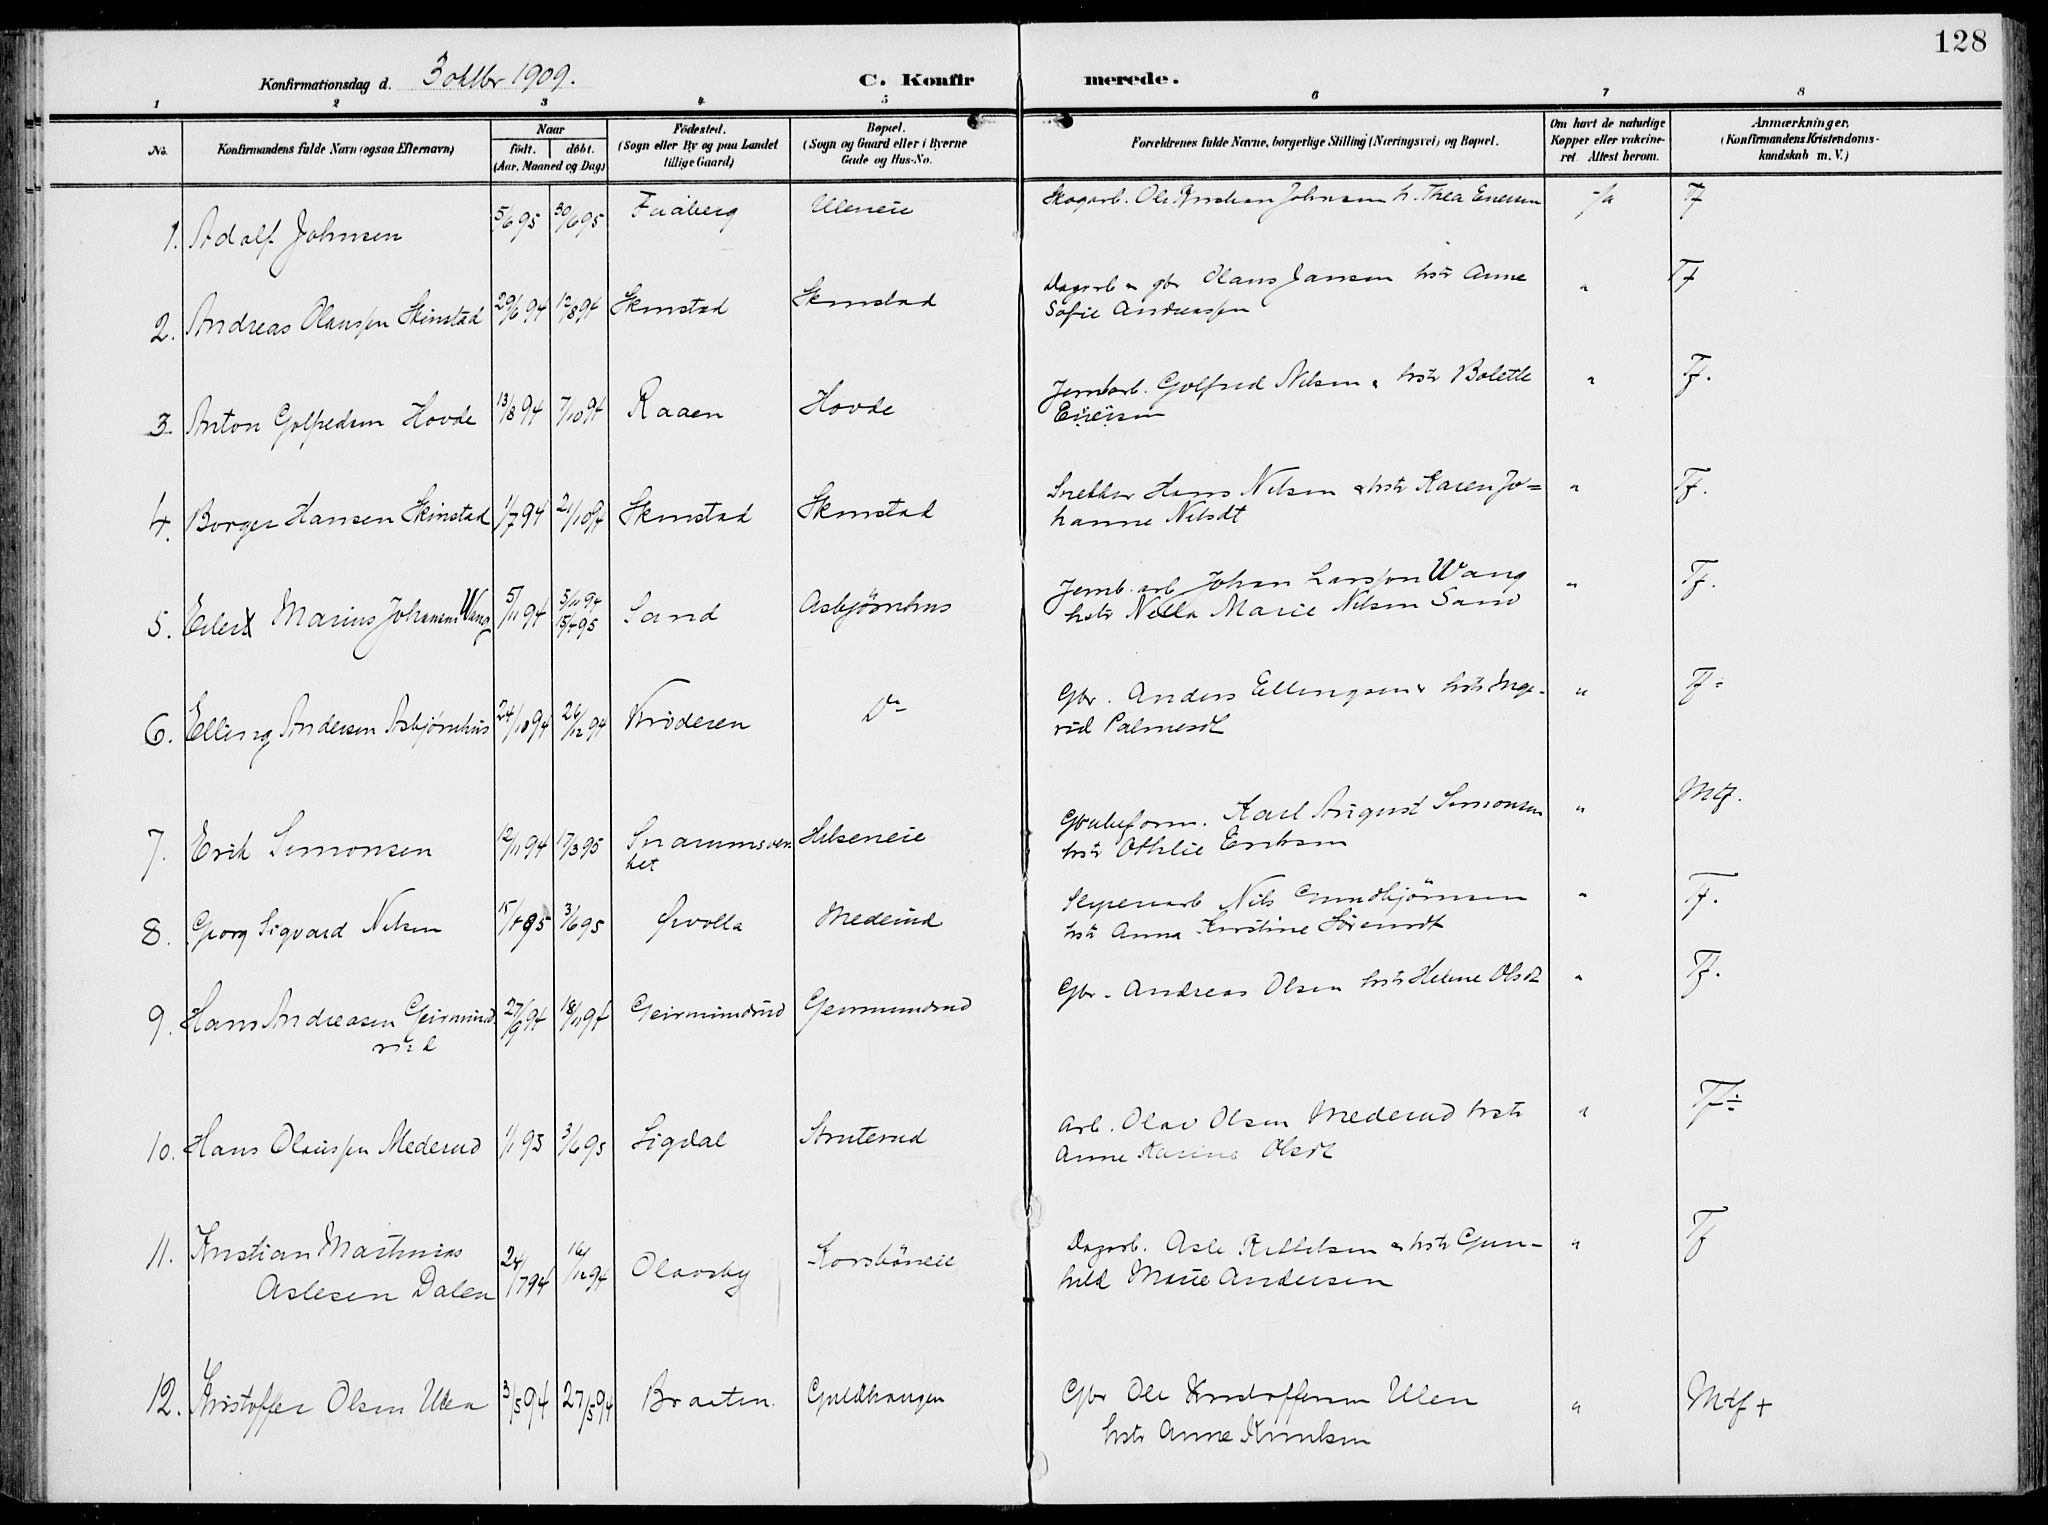 128
Konfirmationsdag d. 3 oktbr 1909.
C. Konfirmerede.
1 2 3 4 5 6 7 8
No.
Konfirmandens fulde Navn (ogsaa Efternavn)
Naar
födt. döbt.
(Aar, Maaned og Dag)
Födested.
(Sogn eller By og paa Landet
tillige Gaard)
Bopæl.
(Sogn og Gaard eller i Byerne
Gade og Hus-No.
Forældrenes fulde Navne, borgerlige Stilling (Næringsvei) og Bopæl.
Om havt de naturlige
Kopper eller vakcine-
ret. Attest herom.
Anmærkninger.
(Konfirmandens Kristendoms-
kundskab m. V.)
1. Adolf Johnsen 5/6 95 30/6 95 Faaberg Uleneie Skogarb. Ole Kristian Johnsen h. Thea Enersen Tf
2. Andreas Olaussen Skinstad 29/6 94 12/8 94 Skinstad Skinstad Dagarb & gbr Olaus Jansen hstr Anne
Sofie Andreassen " Tf
3. Anton Golfredsen Hovde 13/8 94 7/10 94 Raaen Hovde Jernbarb. Golfred Nilsen & hstr Bolette
" Tf.
4. Borger Hansen Skinstad 1/7 94 21/10 94 Skinstad Skinstad Snekker Hans Nilsen & hstr Karen Jo=
hanne Nilsdt " Tf.
5. Eilert Marius Johansen Wang 5/11 94 5/11 94
15/4 95 Sand Asbjørnhus Jernb. arb Johan Larssen Wang
hstr Nella Marie Nilsen Sand " Tf.
6. Elling Andersen Asbjørnhus 24/10 94 26/12 94 Krøderen Do Gbr. Anders Ellingsen & hstr Inge-
rid Palmesdt " Tf-
7. Erik Simonsen 12/11 94 17/3 95 Snarumsver-
ket Helseneie Grubeform. Karl August Simonsen
hstr Othilie Eriksen " Mtf.
8. Georg Sigvard Nilsen 15/4 95 3/6 95 Øvolla Mederud Sliperiarb Nils Gundbjørnsen
hstr Anna Kirstine Sørensdt " Tf.
9. Hans Andreasen Geirmund-
rud 27/9 94 18/11 94 Geirmundrud Geirmundrud Gbr. Andreas Olsen hstr Helene Olsdt " Tf.
10. Hans Olaussen Mederud 1/1 95 3/6 95 Sigdal Struterud Arb. Olav Olsen Mederud hstr
Anne Karine Olsdt " Tf÷
11. Kristian Mathias
Aslesen Dalen 24/7 94 16/12 94 Olavsby Korsbøneie Dagarb. Asle Kittilsen & hstr Gun-
hild Marie Andersen " Tf
12. Kristoffer Olsen Ulen 3/5 94 27/5 94 Braaten Guldhaugen Gbr Ole Kristoffersen Ulen
hstr Anne Knudsen " Mtf +